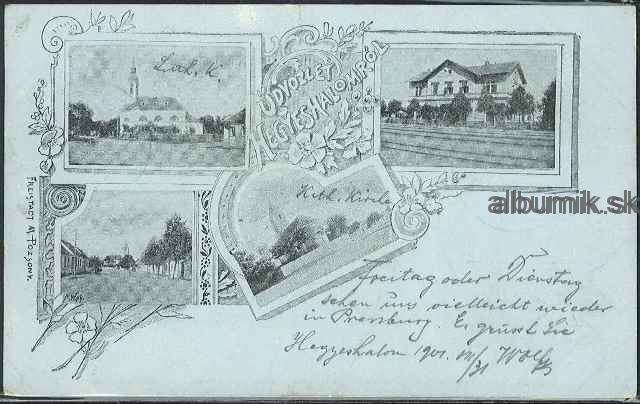 Luth. K.
ÜDVÖZLET
HEGYESHALOMRÓL
Kath. Kirche
FREISTADT M. POZSONY.
albumik.sk
Freitag oder Dienstag
sehen uns vielleicht wieder
in Pressburg. Es grüsst Sie
Hegyeshalom 1901.
31